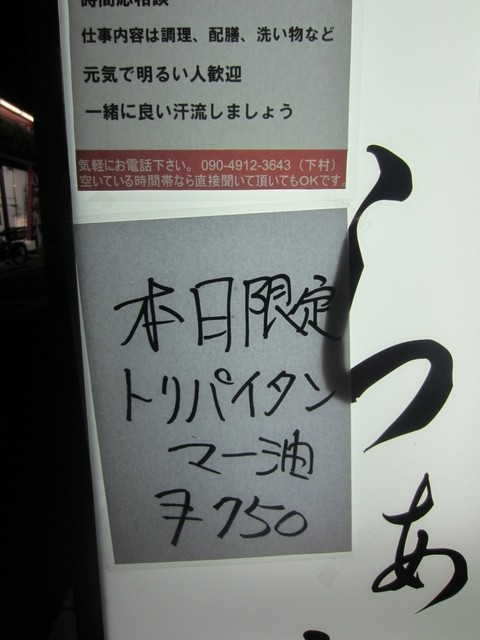 時間応相談
仕事内容は調理、配膳、洗い物など
元気で明るい人歓迎
一緒に良い汗流しましょう
気軽にお電話下さい。 090-4912-3643（下村）
空いている時間帯なら直接聞いて頂いてもOKです
本日限定
トリパイタン
マー油
¥750
らぁ